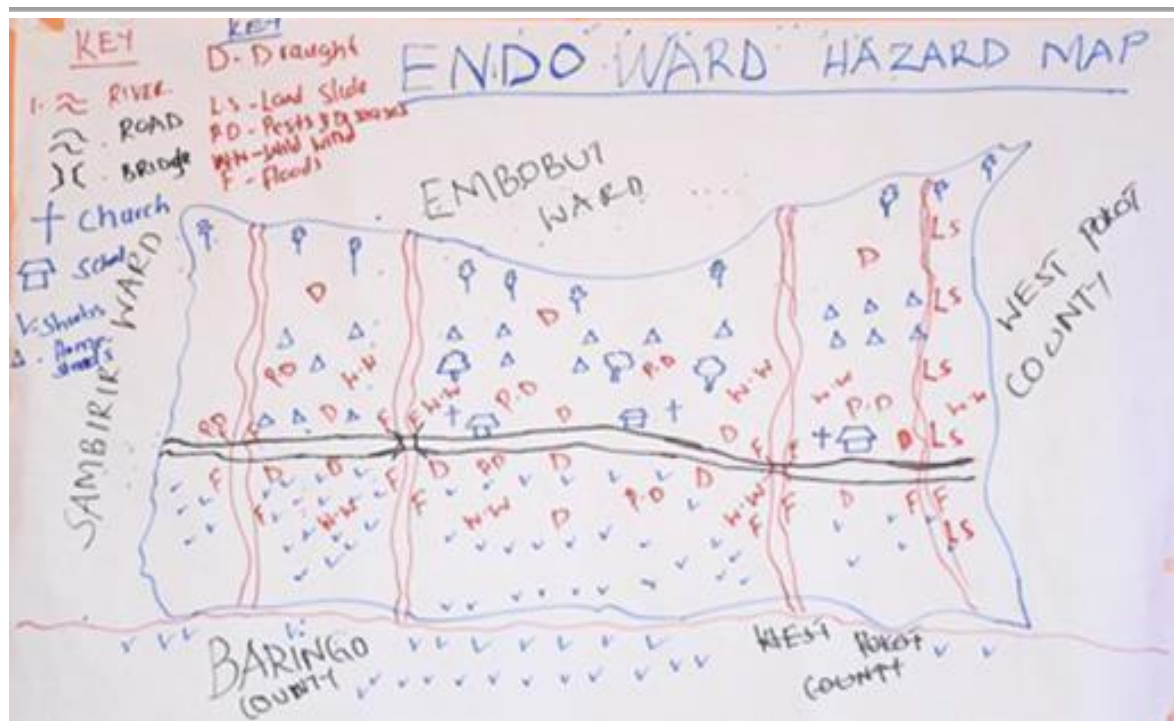 KEY
1. RIVER.
ROAD
BRIDGE
Church
School
Shrubs
KEY
D - Draught
LS - Land Slide
PD - Pests & Diseases
WW - Wild Wind
F - Floods
ENDO WARD HAZARD MAP
EMBOBUT
WARD
SAMBIRIR WARD
WEST POKOT
COUNTY
LS
D
D
LS
D
LS
P.D
W.W
P.D
W.W
W.W
P.D
W.W
P.D
W.W
D
D
PD
F
F
F
D
F
F
D
LS
F
D
D
F
D
PD
D
D
F
W.W
F
P.D
W.W
F
D
F
F
F
W.W
D
F
LS
BARINGO
COUNTY
WEST POKOT
COUNTY